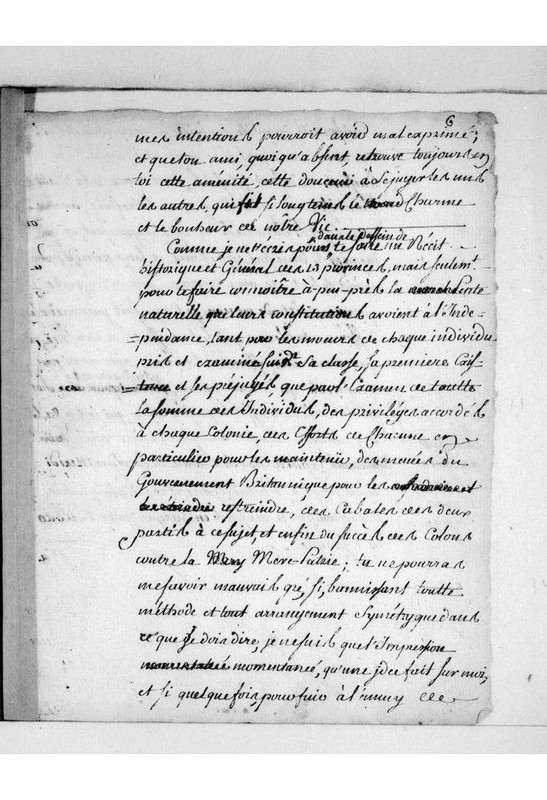 6
mes intentions pourroit avoir mal exprimé;
et que ton ami, quoiqu'absent, retrouve toujours en
toi cette aménité, cette douceur à se juger les uns
les autres, qui fit si longtems le Charme
et le bonheur de nôtre Vie.
Comme je ne t'écris pas dans le dessein de te faire un Récit
historique et Général des 13 provinces, mais seulemt.
pour te faire connoître à-peu-près la Pente
naturelle que leurs constitutions avoient à l'Inde-
=pendance, tant par les mœurs de chaque individu
pris et examiné suivt. sa classe, sa premiere Exis-
=tence et ses préjugés, que par l'Examen de toutte
la somme des Individus, des privilèges accordés
à chaque Colonie, des Efforts de Chacune en
particulier pour les maintenir, des menées du
Gouvernement Britannique pour les
restreindre, des Cabales des deux
partis à ce sujet, et enfin du succès des Colons
contre la Mere-Patrie; tu ne pourras
me savoir mauvais gré, si, bannissant toutte
méthode et tout arrangement Symétryque dans
ce que je dois dire, je ne suis que l'Impression
momentanée, qu'une idée fait sur moi,
et si quelque fois, pour fuir à l'ennuy